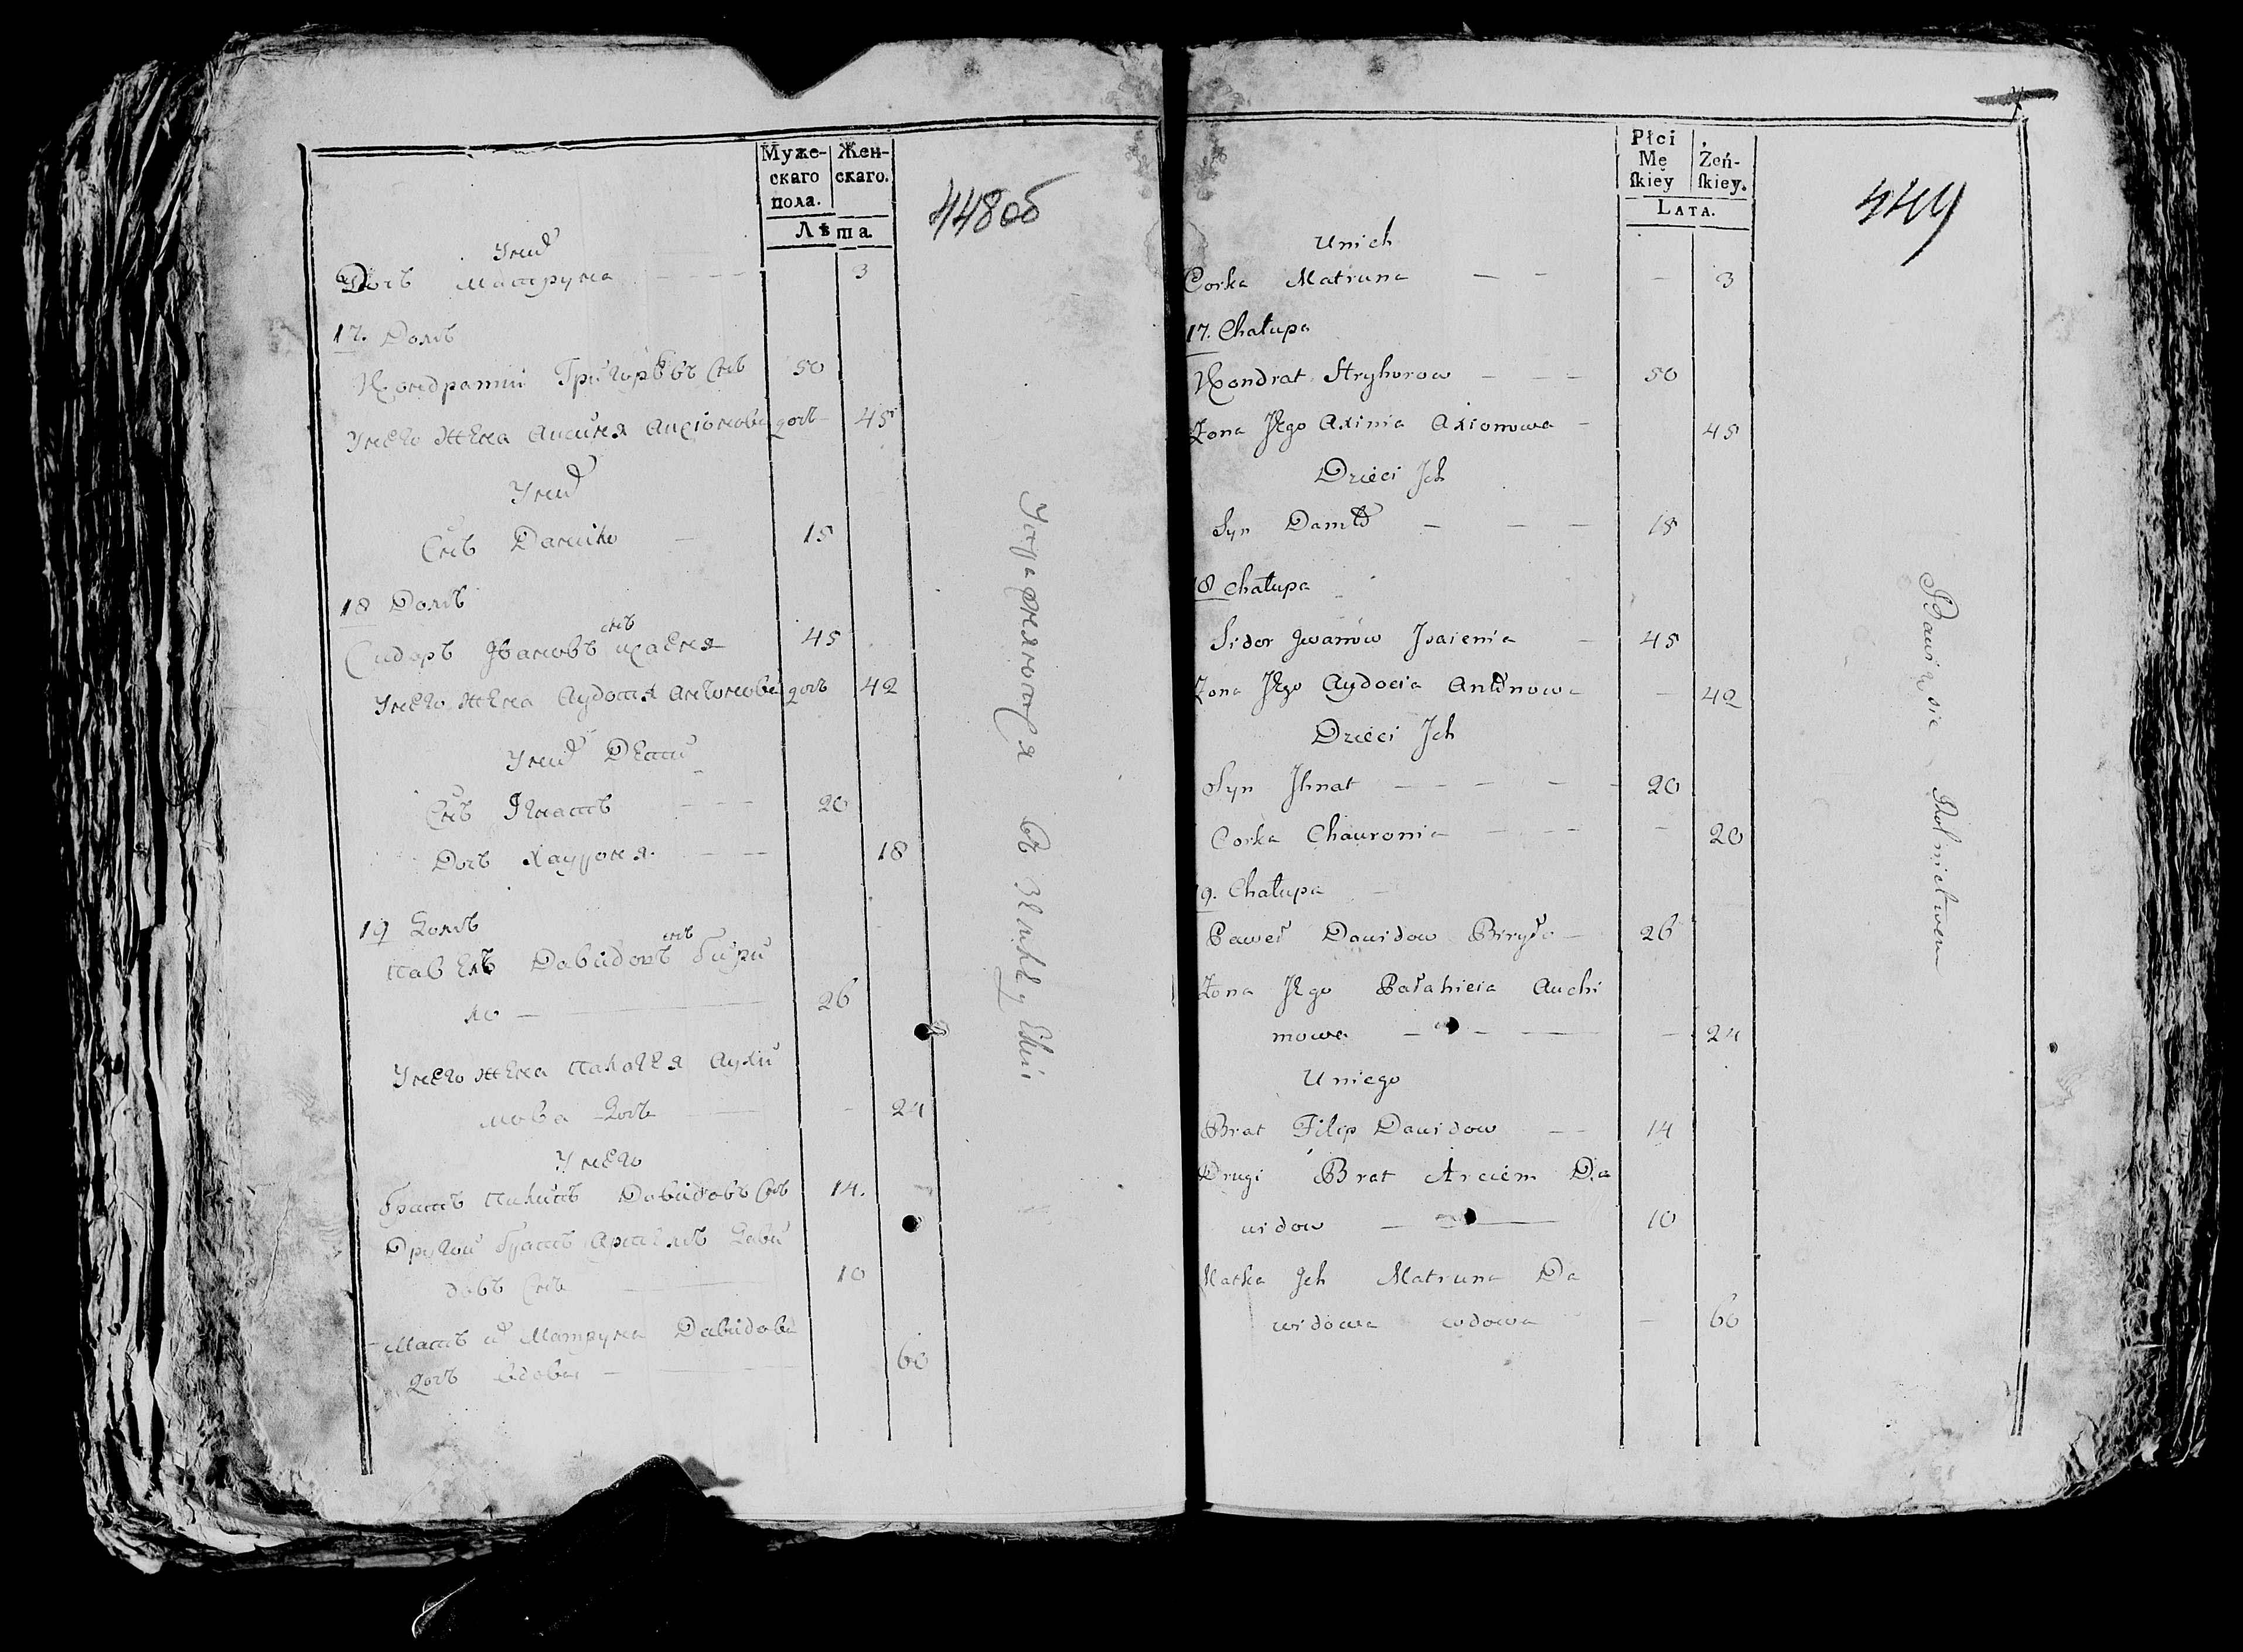 Муже-
скаго
пола.
Жен-
скаго.
Лѣта.
448об
У них
Дочь Матруна 3
17. Домъ
Кондратий Григорьевъ снъ 50
У него жена Аксиня Аксіонова дочь 45
У них
Снъ Данило 15
18 Домъ
снъ
Сидоръ Ивановъ Исаеня 45
У него жена Аудотя Антонова дочь 42
У них Дети
Снъ Игнатъ 20
Дочь Хаурония 18
19 Домъ
снъ
Павелъ Давидовъ Бири
ло 26
У него жена Палагея Аухи
мова дочь 24
У него
Братъ Пилипъ Давидовъ снъ 14.
Другой братъ Артемъ Дави
довъ снъ 10
Мать их Матруна Давидова
дочь вдова 60
Упражняются в
Płci
Mę
ſkiey
Żeń-
ſkiey.
LATA.
449
U nich
Corka Matruna 3
17. Chałupa
Kondrat Hryhorow 50
Żona Jego Axinia Axionowa 45
Dzieci Jch
Syn Daniło 15
18 Chałupa
Sidor Jwanow Jsaienia 45
Żona Jego Aydocia Antonowa 42
Dzieci Jch
Syn Jhnat 20
Corka Chauronia 20
19. Chałupa
Paweł Dawidow Biryło 26
Żona Jego Pałahieia Auchi
mowa 24
U niego
Brat Filip Dawidow 14
Drugi Brat Arciem Da
widow 10
Matka Jch Matruna Da
widowa wdowa 60
Bawią sie Rolnictwem